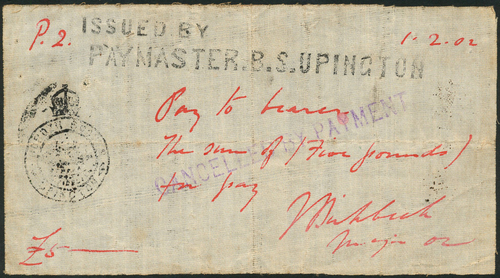 P.2.
ISSUED BY
1.2.02
PAYMASTER.B.S.UPINGTON
Pay to bearer
The sum of (Five pounds)
for pay
CANCELLED BY PAYMENT
£5
Major